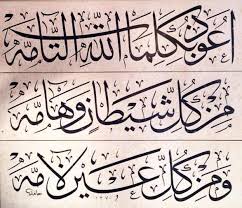 اعوذ بكلمات الله التامّه
من كلّ شيطانٍ وهامّه
ومن كلّ عينٍ لامّه